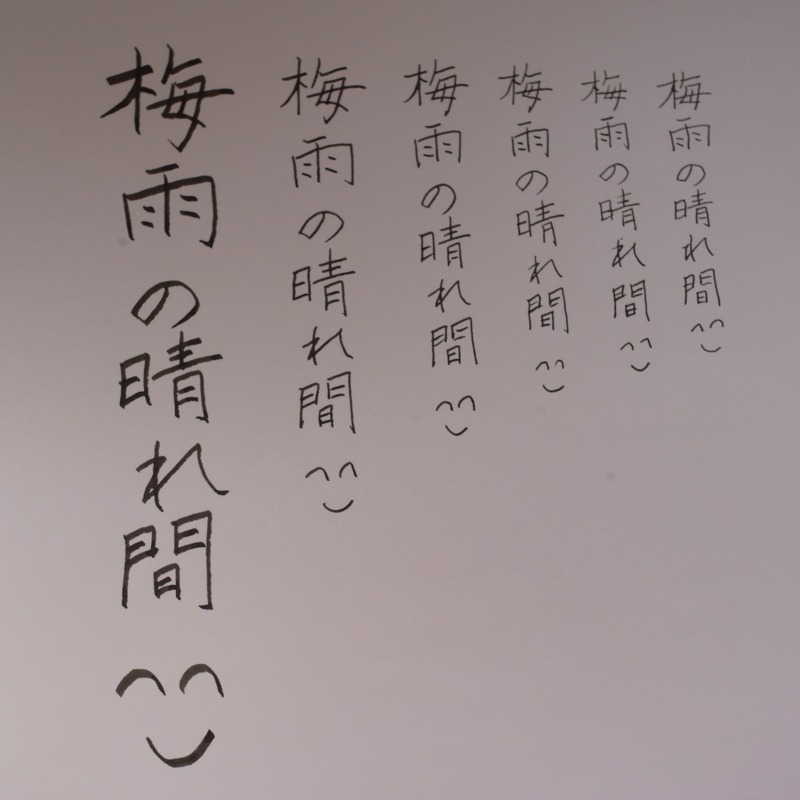 梅雨の晴れ間
梅雨の晴れ間
梅雨の晴れ間
梅雨の晴れ間
梅雨の晴れ間
梅雨の晴れ間